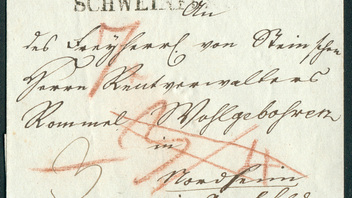 SCHWEINF
An
des Freyherrl. von Steinschen
Herrn Rentverwalters
Rommel Wohlgebohren
in
Nordheim